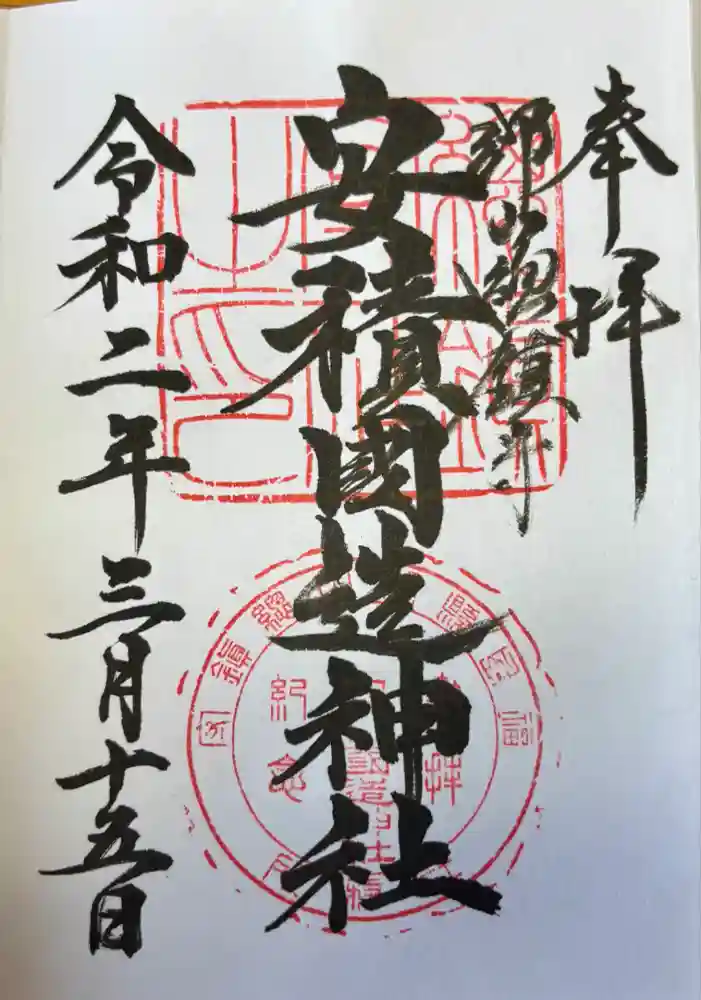 奉拝
郡山総鎮守
安積國造神社
令和二年三月十五日
紀念